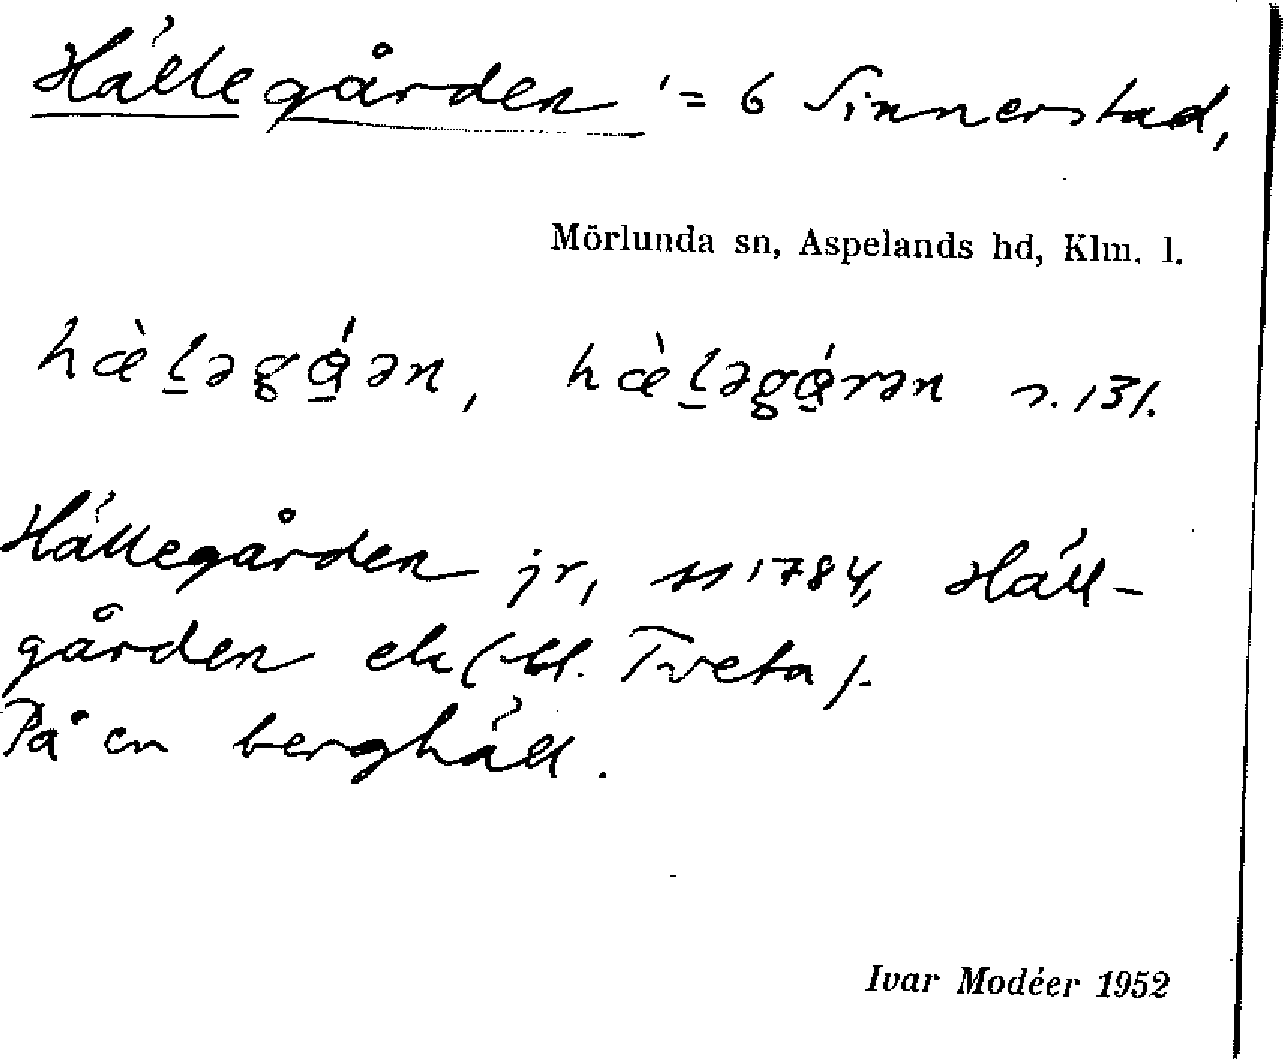 Hällegården '= 6 Sinnerstad,
Mörlunda sn, Aspelands hd, Klm. l.
hæ̀ḻəgɑ̱́ən, hæ̀ḻəgɑ̱́rən s. 131.
Hällegården jr, ss 1784, Häll-
gården ek (bl. Tveta).
På en berghäll.
Ivar Modéer 1952